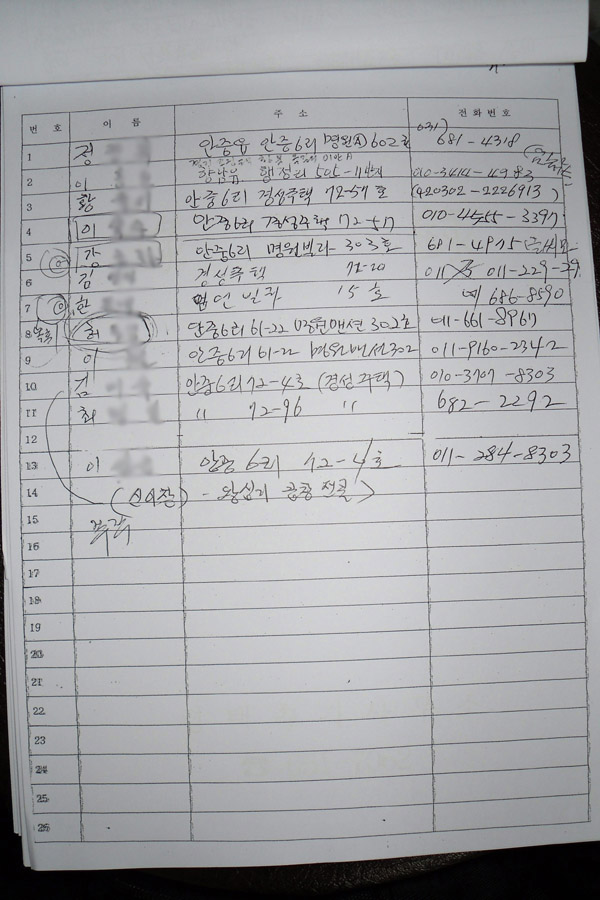 번 호 이 름 주 소 전 화 번 호
031)
1 정 안중읍 안중6리 명원Ⓐ 602호 681-4318
2 이 향남읍 행정리 505-11번지 010-3414-4983
3 황 안중6리 경성주택 72-57호 (420302-2226913)
4 이 안중6리 경성주택 72-57 010-4555-3397
5 강 안중6리 명원빌라 303호 681-4975
6 김 경성주택 72-20 011 011-229-
7 한 빌라 15호 686-8590
8 허 안중6리 61-22 맨션 302호 661-8967
9 이 안중6리 61-22 맨션 302 011-9160-2342
10 김 안중6리 72-4호 (경성주택) 010-3707-8303
11 최 〃 72-96 〃 682-2292
12
13 이 안중 6리 72-4호 011-284-8303
14
15
16
17
18
19
20
21
22
23
24
25
26